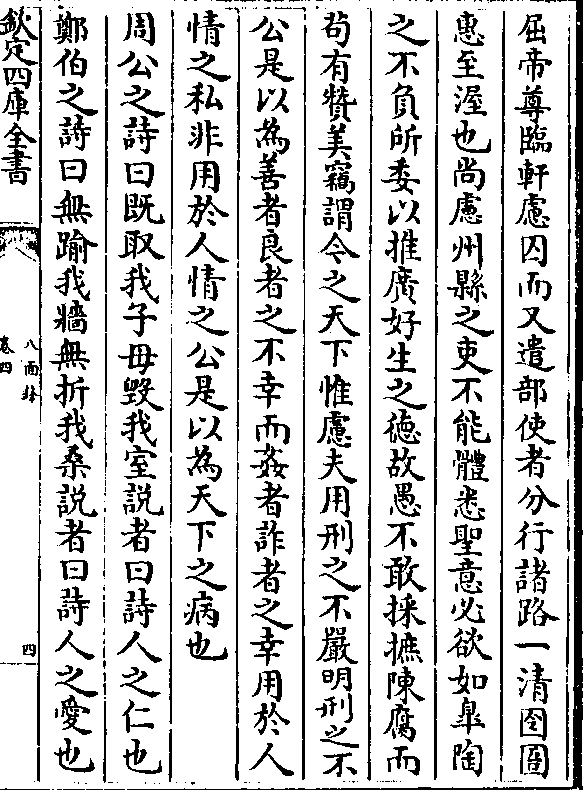 屈帝尊臨軒慮囚而又遣部使者分行諸路一清囹圄
惠至渥也尚慮州縣之吏不能體悉聖意必欲如臯陶
之不負所委以推廣好生之徳故愚不敢採摭陳腐而
茍有贊美竊謂今之天下惟慮夫用刑之不嚴明刑之不
公是以為善者良者之不幸而姦者詐者之幸用於人
情之私非用於人情之公是以為天下之病也
周公之詩曰既取我子毋毀我室説者曰詩人之仁也
鄭伯之詩曰無踰我牆無折我桑説者曰詩人之愛也
欽定四庫全書
八面鋒
卷四
四